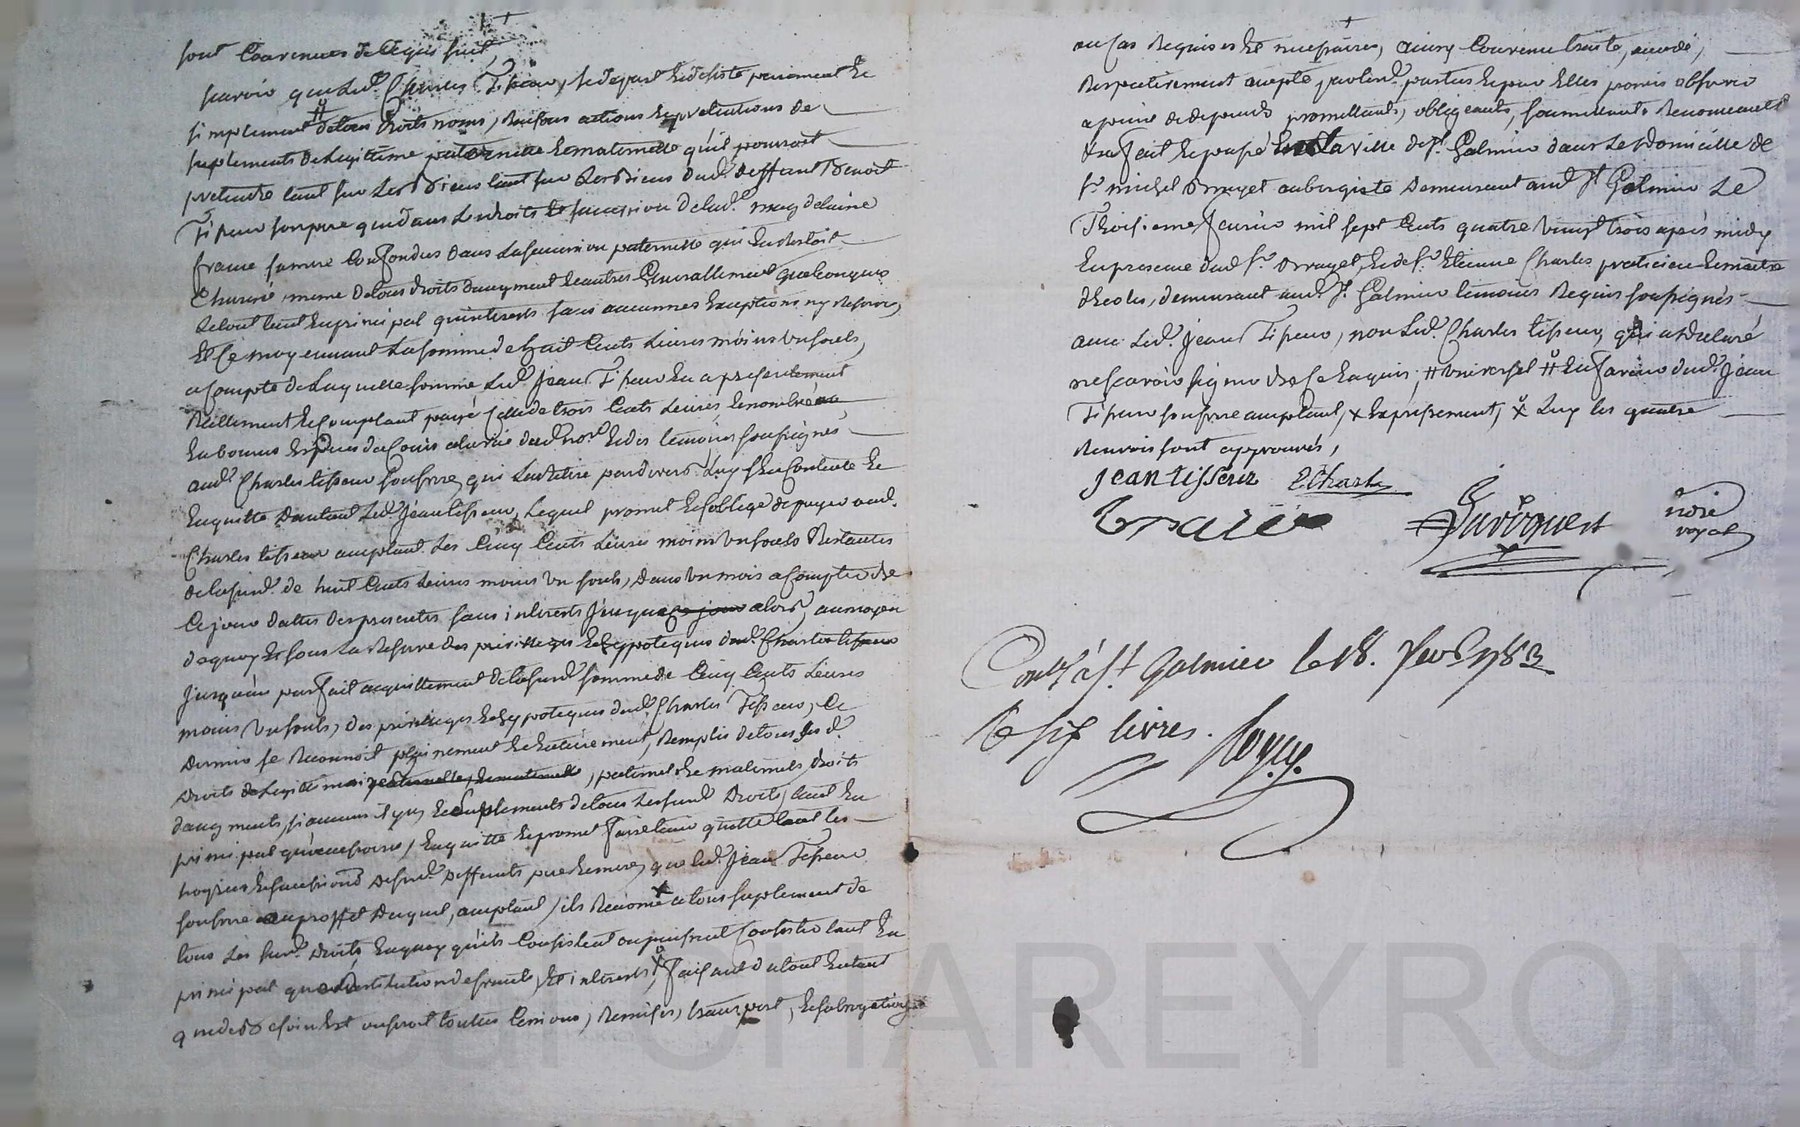 sont Convenues de Ce qui suit,
scavoir que led. Charles Tisseur, se depart Et desiste purement Et
simplement de tous droits noms, Raisons actions Et pretentions de
suplements de Legittime paternelle Et maternelle qu'il pourroit
pretendre tant sur Les Biens dud. deffunt Benoit
Tisseur son pere que dans Les droits Et succession de lad. magdelaine
france sa mere Confondus dans La succession paternelle qui
meme de tous droits d'augment Et autres Generallement quelconques
le tout tant En principal qu'interests sans aucunnes Exceptions ny Reserves,
Et Ce moyennant La somme de huit Cents Livres moins un souls,
a Compte de Laquelle somme Led. Jean Tisseur En a presentement
Reellement Et Comptant payé Celle de trois Cents Livres, Et nombré
En bonnes Especes de Cours a la vüe dud. nore. Et des temoins soussignés
aud. Charles tisseur son frere, qui La Retire pardevers Luy s'En Contente Et
En quitte d'autant Led. Jean tisseur, Lequel promet Et s'oblige de payer aud.
Charles tisseur acceptant Les Cinq Cents Livres moins un souls Restantes
de lasusd. de huit Cents Livres moins un souls, dans un mois a Compter de
Ce jour datte des presentes sans interests jusques alors, au moyen
de quoy Et sous La Reserve des privileges Et hypoteques dud. Charles tisseur
jusqu'au parfait acquittement de lasusd. somme de Cinq Cents Livres
moins un souls, des privileges Et hypoteques dud. Charles Tisseur, Ce
dernier se Reconnoit pleinement Et Entierement, Remplis de tous sesd.
droits de Legittime paternelle, Et maternelle, paternels Et maternels, droits
d'augments, si aucuns il y a, Et suplements de tous Les susd. droits, tant En
principal qu'accessoires, En quitte Et promet faire tenir quitte tant les
hoiries Et successions desusd. deffunts pere Et mere, que led. Jean Tisseur
son frere au proffit duquel, acceptant, ils Renonce a tous suplement de
tous Les susd. droits En quoy qu'ils Consistent ou puissent Consister tant En
principal que Restitution de fruits, Et interests, faisant du tout En tant
que de Besoin Est ou seroit toutes Cessions, Remises, transport, Et subrogations
au Cas Requises Et necessaires, Ainsy Convenu traité, accordé,
Respectivement accepté, par lesd. parties Et par Elles promis observer
a peine de depends promettants, obligeants, soumettants Renonceants
fait Et passé En La ville de St. Galmier dans Le domicille de
Sr. michel Brayet aubergiste demeurant aud. St. Galmier Le
Troisieme fevrier mil sept Cents quatre vingt trois après midy
En presence dud. Sr. Brayet, Et de Sr. Etienne Charles praticien Et maitre
d'Ecoles, demeurant aud. St. Galmier temoins Requis soussignés
avec Led. Jean Tisseur, non Led. Charles tisseur, qui a declaré
ne scavoir signer de Ce Enquis, # universel # En faveur dud. Jean
Tisseur son frere acceptant, x Expressement, x Luy les quatre
Renvois sont approuvés,
jean tisseur E. Charles
nore royal
Contlé à St. Galmier le 18. fevr 1783
R six livres.